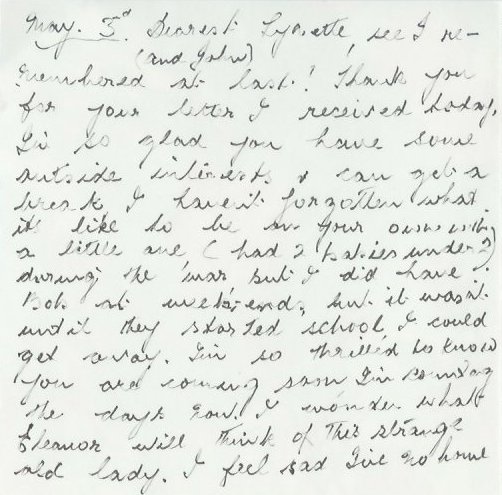 May. 3rd. Dearest Lynette, see I re-
(and John)
membered at last! Thank you
for your letter I received today.
I'm so glad you have some
outside interests & can get a
break I haven't forgotten what
it's like to be on your own with
a little one, (had 2 babies under 2)
during the war but I did have
Bob at weekends, but it wasn't
until they started school I could
get away. I'm so thrilled to know
you are coming soon I'm counting
the days now. I wonder what
Eleanor will think of this strange
old lady. I feel sad I've no home